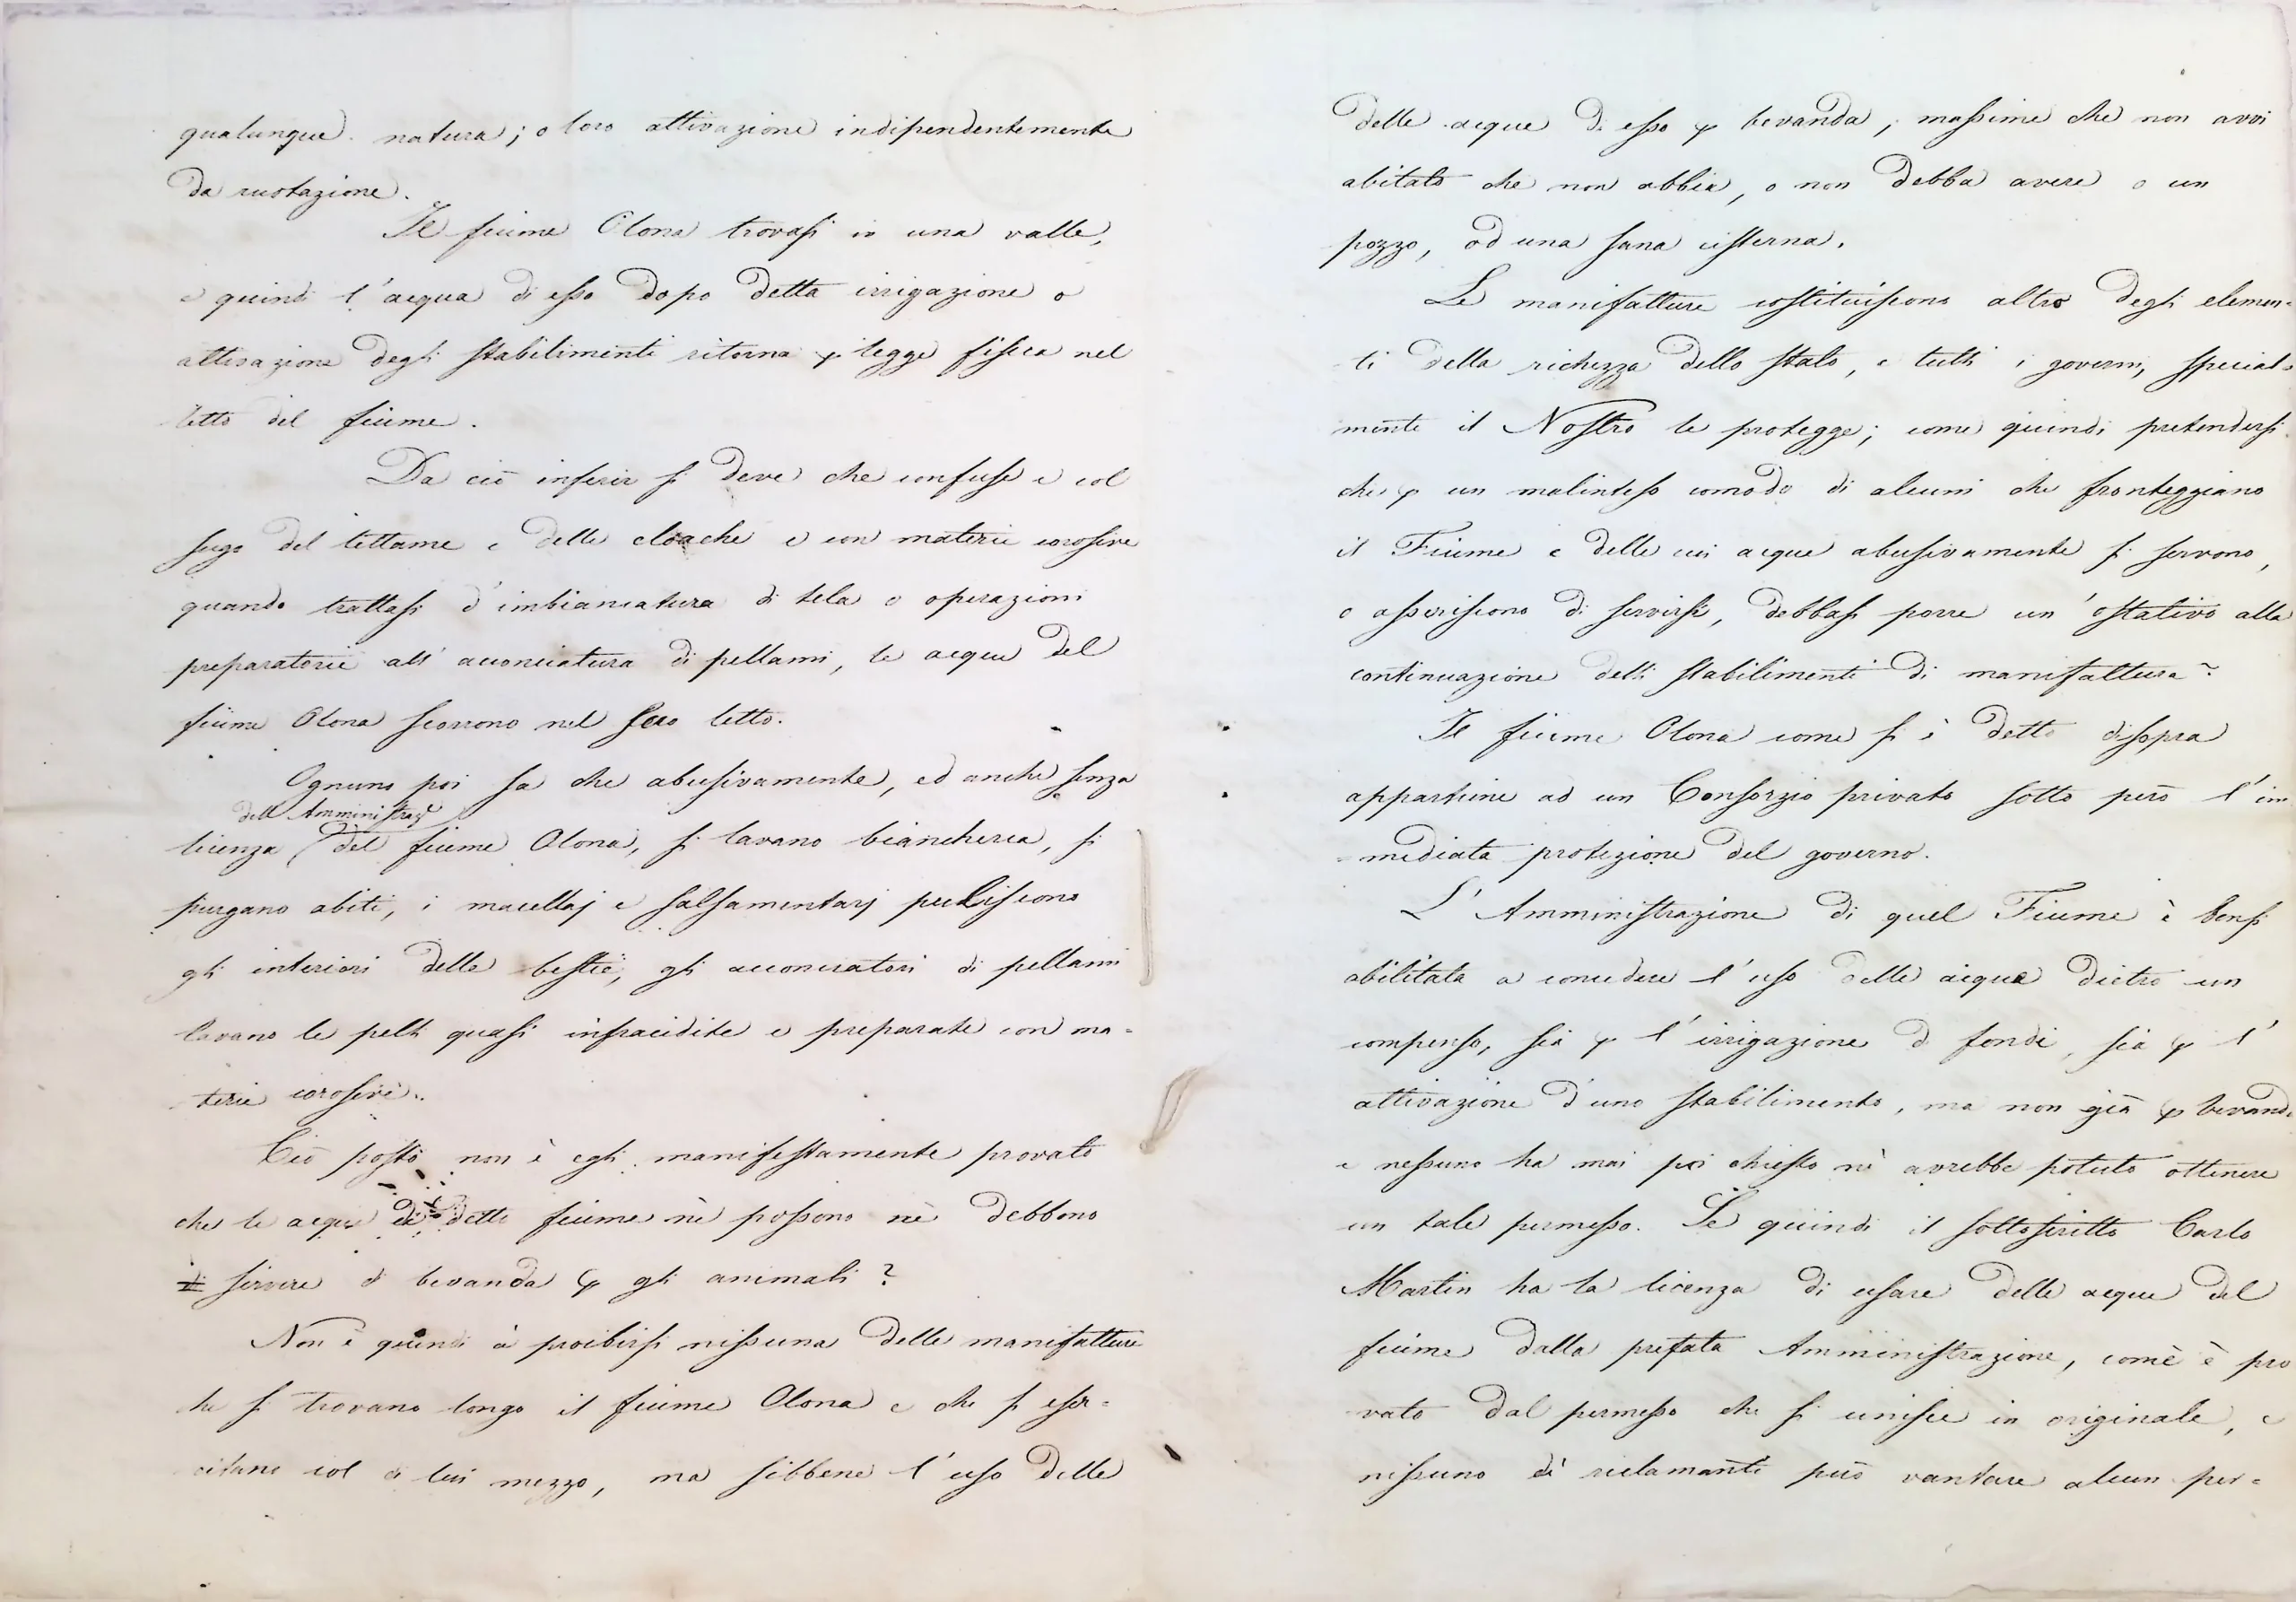 qualunque natura; o loro attivazione indipendentemente
da ruotazione.
Il fiume Olona trovasi in una valle,
e quindi l'acqua di esso dopo detta irrigazione o
attivazione degli stabilimenti ritorna p legge fisica nel
letto del fiume.
Da ciò inferir si deve che confuse e col
sugo del lettame e delle cloache e con materie corosive
quando trattasi d'imbiancatura di tela o operazioni
preparatorie all'acconciatura di pellami, le acque del
fiume Olona scorrono nel suo letto.
Ognuno poi sa che abusivamente, ed anche senza
dell'Amministraze
licenza del fiume Olona, si lavano biancheria, si
purgano abiti, i macellaj e salsamentarj puliscono
gli interiori delle bestie, gli acconciatori di pellami
lavano le pelli quasi infracidite e preparate con ma=
terie corosive.
Ciò posto non è egli manifestamente provato
che le acque di detto fiume nè possono nè debbono
servire di bevanda p gli animali?
Non è quindi a proibirsi nissuna delle manifatture
che si trovano longo il fiume Olona e che si eser=
citano col di lui mezzo, ma sibbene l'uso delle
delle acque di esso p bevanda, massime che non avvi
abitato che non abbia, o non debba avere o un
pozzo, od una sana cisterna.
Le manifatture costituiscono altro degli elemen=
ti della richezza dello stato, e tutti i governi, special=
mente il Nostro le protegge; come quindi pretendersi
che p un malinteso comodo di alcuni che fronteggiano
il Fiume e delle cui acque abusivamente si servono,
o asseriscono di servirsi, debbasi porre un'ostativo alla
continuazione delli stabilimenti di manifattura?
Il fiume Olona come si è detto disopra
appartiene ad un Consorzio privato sotto però l'im
=mediata protezione del governo.
L'Amministrazione di quel Fiume è bensi
abilitata a concedere l'uso delle acque dietro un
compenso, sia p l'irrigazione di fondi, sia p l'
attivazione d'uno stabilimento, ma non già p bevanda
e nessuno ha mai poi chiesto nè avrebbe potuto ottenere
un tale permesso. Se quindi il sottoscritto Carlo
Martin ha la licenza di usare delle acque del
fiume dalla prefata Amministrazione, come è pro
vato dal permesso che si unisce in originale, e
nissuno di reclamanti può vantare alcun per=